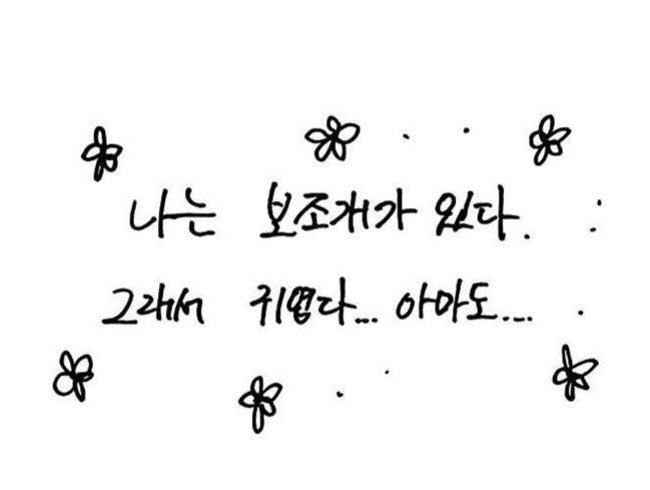 나는 보조개가 있다.
그래서 귀엽다... 아마도....